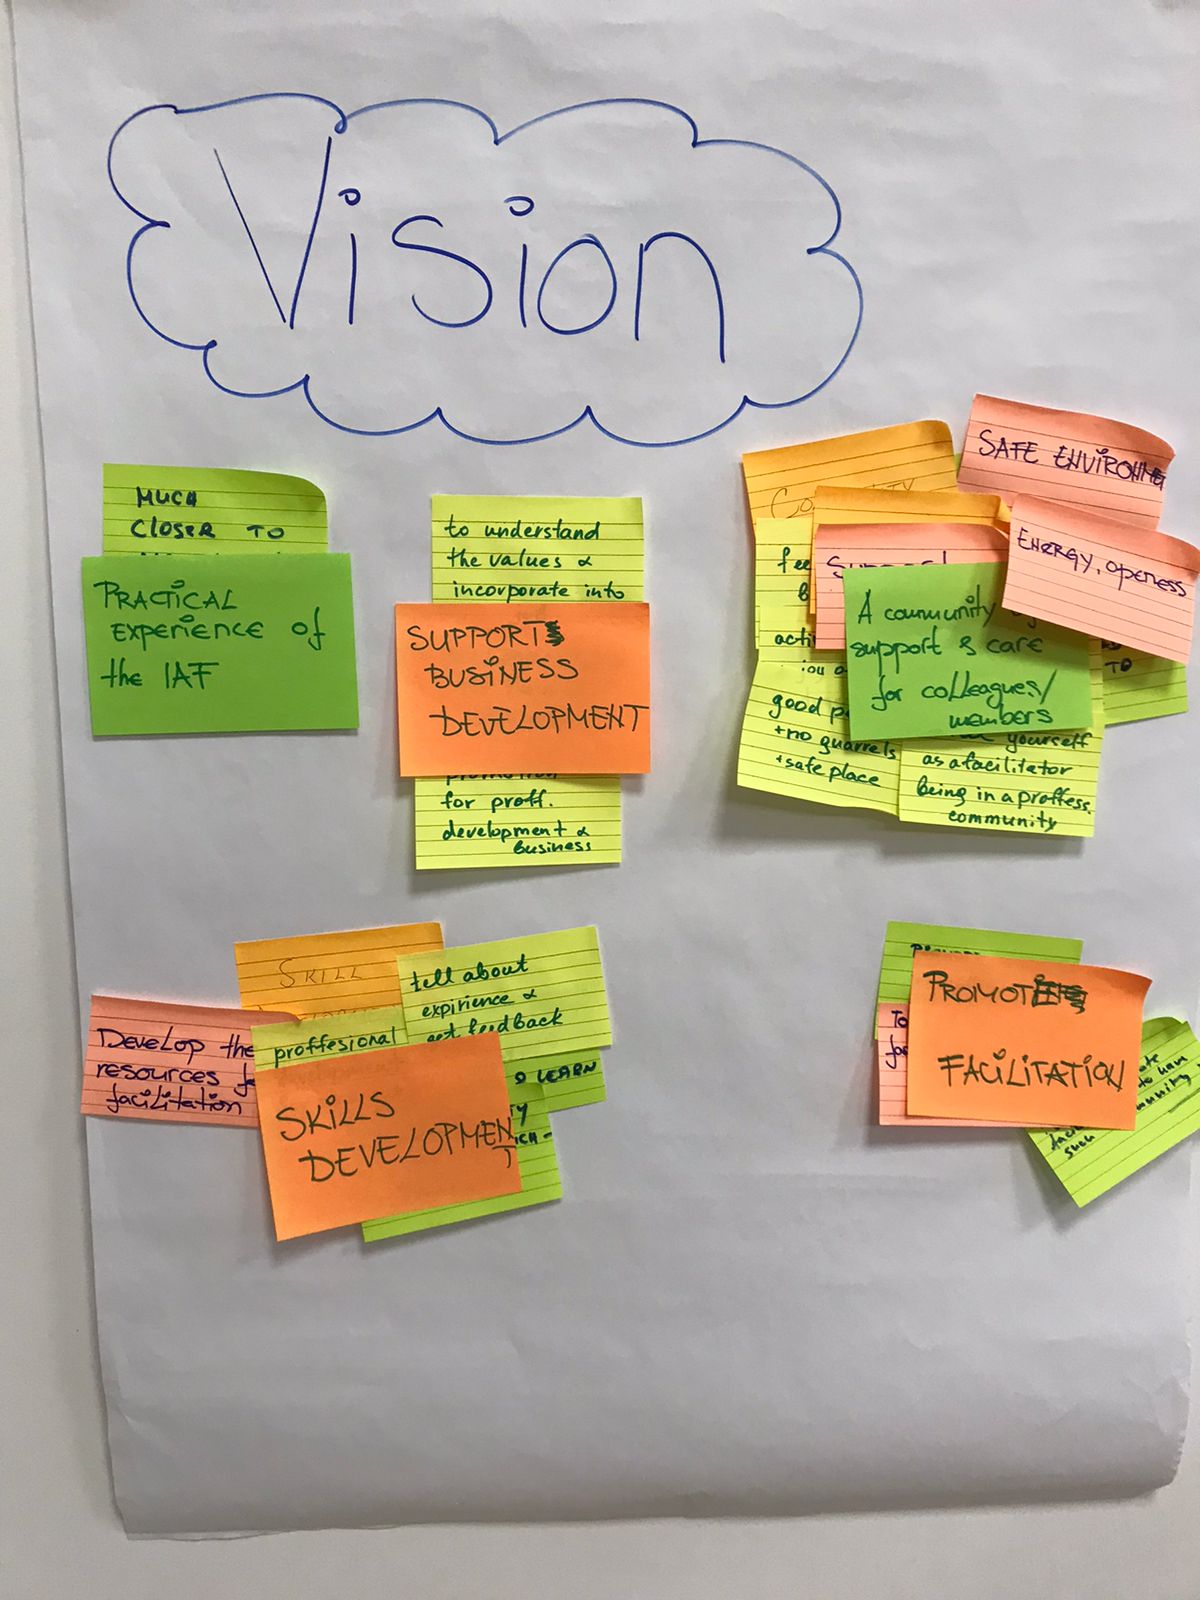 Vision
MUCH
CLOSER TO
PRACTICAL
EXPERIENCE of
the IAF
to understand
the values &
incorporate into
SUPPORT
BUSINESS
DEVELOPMENT
for proff.
development &
business
SAFE ENVIRONME
ENERGY, OPENESS
SUPPORT
A community
support & care
for colleagues/
members
TO
good
+no quarrels
+safe place
yourself
as a facilitator
being in a proffess.
community
SKILL
tell about
expirience &
get feedback
DEVELOP the
resources
facilitation
proffesional
LEARN
SKILLS
DEVELOPMENT
PROMOT
FACILITATION
TO
to have
such